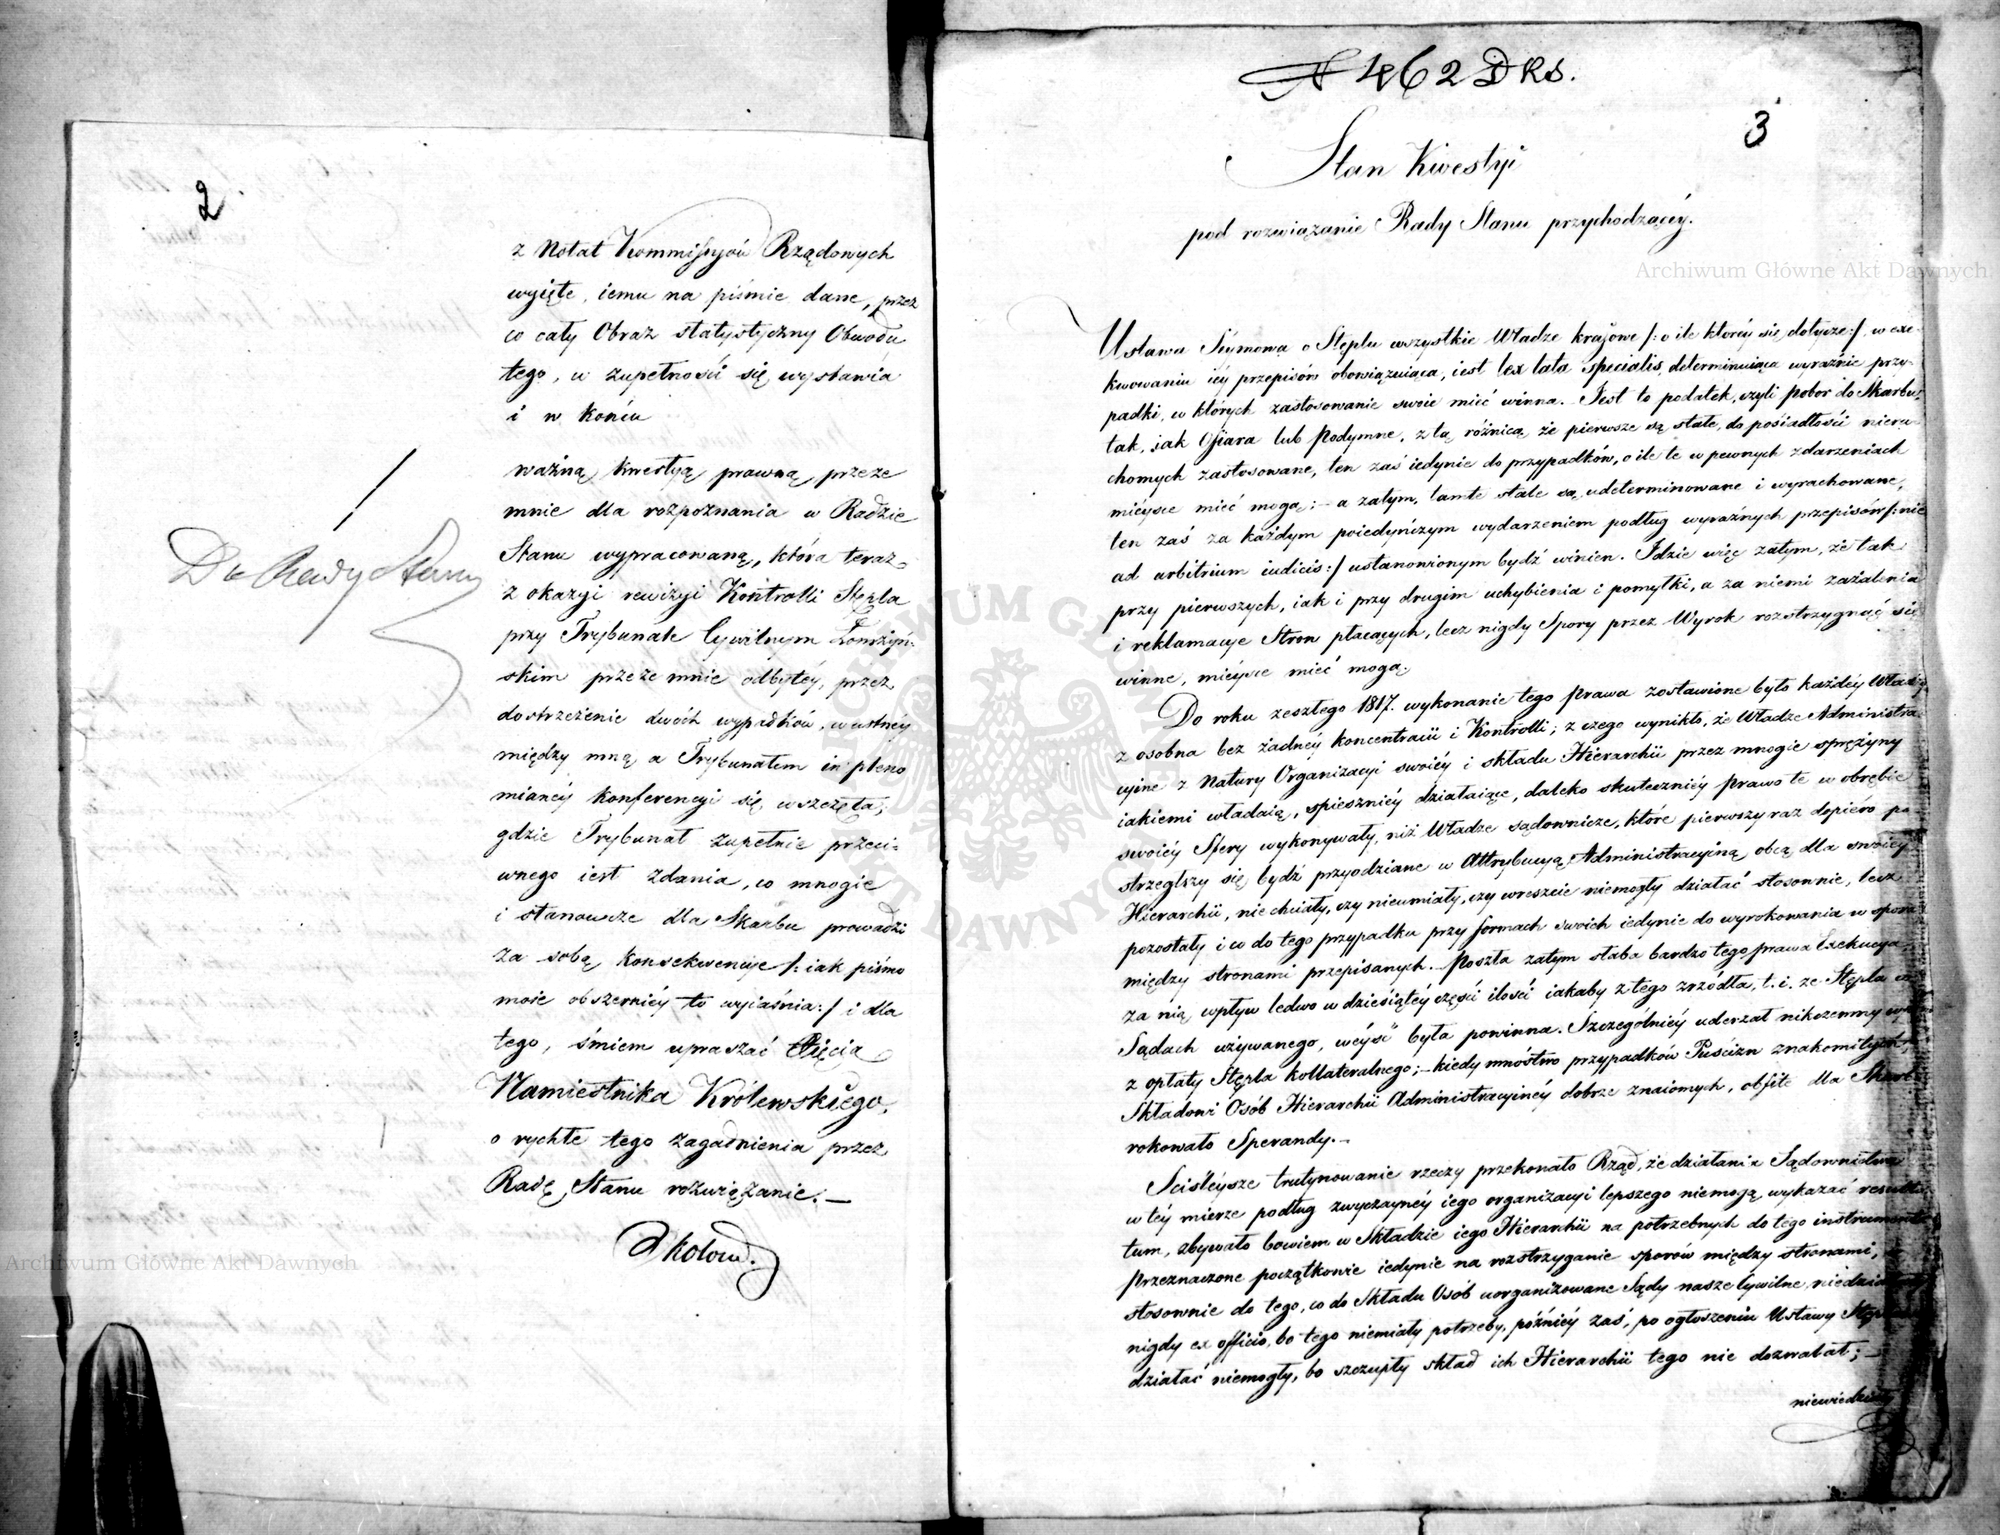 2
z Notat Kommissyów Rządowych
wyięte, iemu na piśmie dane, przez
co cały Obraz statystyczny Obwodu
tego, w zupełności się wystawia
i w końcu
ważną kwestyą prawną, przeze
mnie dla rozpoznania w Radzie
Stanu wypracowaną, która teraz
z okazyi rewizyi Kontrolli Stępla
przy Trybunale Cywilnym Łomżyń-
skim przeze mnie odbytéy, przez
dostrzeżenie dwóch wypadków, w ustnéy
między mną a Trybunałem in pleno
mianéy konferencyi się wszczęła,
gdzie Trybunał zupełnie przeci-
wnego iest zdania, co mnogie
i stanowcze dla Skarbu prowadzi
za sobą konsekwencye /: iak pismo
moie obszerniéy to wyiaśnia :/ i dla
tego, śmiem upraszać Xięcia
Namiestnika Królewskiego,
o rychłe tego zagadnienia przez
Radę Stanu rozwiązanie. —
Do Rady Stanu
N 462 DRS.
3
Stan Kwestyi
pod rozwiązanie Rady Stanu przychodzącéy.
Ustawa Séymowa o Stęplu wszystkie Władze kraiowe /: o ile któréy się dotycze :/ w exe-
kwowaniu iéy przepisów obowiązuiąca, iest lex lata specialis, determinuiąca wyraźnie przy-
padki, w których zastosowanie swoie mieć winna. Jest to podatek, czyli pobór do Skarbu,
tak, iak Ofiara lub Podymne, z tą różnicą że pierwsze są stałe, do posiadłości nieru-
chomych zastosowane, ten zaś iedynie do przypadków, o ile te w pewnych zdarzeniach
mieysce mieć mogą; — a zatym, tamte stale są udeterminowane i wyrachowane,
ten zaś za każdym poiedyńczym wydarzeniem podług wyraźnych przepisów /: nie
ad arbitrium iudicis :/ ustanowionym bydź winien. Idzie więc zatym, że tak
przy pierwszych, iak i przy drugim uchybienia i pomyłki, a za niemi zażalenia
i reklamacye Stron płacących, lecz nigdy Spory przez Wyrok rozstrzygnąć się
winne, mieysce mieć mogą.
Do roku zeszłego 1817. wykonanie tego prawa zostawione było każdéy Władzy
z osobna bez żadnéy koncentracii i Kontrolli; z czego wynikło, że Władze Administra-
cyine z Natury Organizacyi swoiéy i składu Hierarchii przez mnogie sprężyny
iakiemi władaią, spieszniéy działaiące, daleko skuteczniéy prawo te w obrębie
swoiéy Sfery wykonywały, niż Władze sądownicze, które pierwszy raz dopiero po-
strzegłszy się bydź przyodziane w Attrybucyą Administracyiną obcą dla swoiéy
Hierarchii, nie chciały, czy nieumiały, czy wreszcie niemogły działać stosownie, lecz
pozostały i co do tego przypadku przy formach swoich iedynie do wyrokowania w sporach
między stronami przepisanych. Poszła zatym słaba bardzo tego prawa Exekucya,
za nią wpływ ledwo w dziesiątéy części ilości iakaby z tego zrzódła, t. i. ze Stępla w
Sądach używanego, weyść była powinna. Szczególniéy uderzał nikczemny wpływ
z opłaty Stępla kollateralnego; — kiedy mnóstwo przypadków Puścizn znakomitych,
Składowi Osób Hierarchii Administracyinéy dobrze znaiomych, obfite dla Skarbu
rokowało Sperandy. —
Ścisléysze trutynowanie rzeczy przekonało Rząd, że działania Sądownictwa
w téy mierze podług zwyczaynéy iego organizacyi lepszego niemogą wykazać resulta-
tum, zbywało bowiem w Składzie iego Hierarchii na potrzebnych do tego instrumentach
Przeznaczone początkowie iedynie na rozstrzyganie sporów między stronami,
stosownie do tego, co do Składu Osób uorganizowane Sądy nasze Cywilne, niedziałały
nigdy ex officio, bo tego niemiały potrzeby, późniéy zaś, po ogłoszeniu Ustawy Stęplowéy
działać niemogły, bo szczupły skład ich Hierarchii tego nie dozwalał; —
Archiwum Główne Akt Dawnych
Archiwum Główne Akt Dawnych
ARCHIWUM GŁÓWNE AKT DAWNYCH